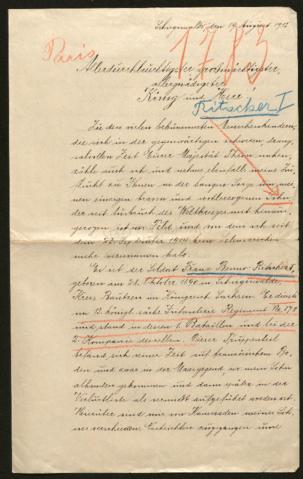 Schirgiswalde, den 19. August 1917
Paris
1783
Allerdurchlauchtigster Großmächtigster,
Allergnädigster
König und Herr!
Ritscher I
Zu den vielen bekümmerten Menschenkindern,
die sich in der gegenwärtigen schweren
Zeit Eurer Majestät Thron nahen,
zähle auch ich, und nehme ebenfalls meine Zu-
flucht zu Ihnen in der bangen Sorge um mei-
nen einzigen braven und Sohn
der seit Ausbruch des Weltkrieges mit hinaus-
gezogen ist ins Feld, und von dem ich seit
dem September 1914 kein Lebenszeichen
mehr vernommen habe.
Es ist der Soldat Franz Benno Ritscher,
geboren am 21. Oktober 1890 in Schirgiswalde,
Kreis Bautzen im Königreich Sachsen. Er diente
im 13. königl. sächs. Infanterie Regiment No. 178
und stand in dessen 1. Bataillon und bei der
2. Kompanie desselben. Dieser Truppenteil
befand sich seiner Zeit auf französischem Bo-
den und zwar in der wo mein Sohn
abhanden gekommen und dann später in der
Verlustliste als vermißt aufgeführt worden ist.
Vorerst sind mir von Kameraden meines Soh-
nes verschiedene zugegangen und